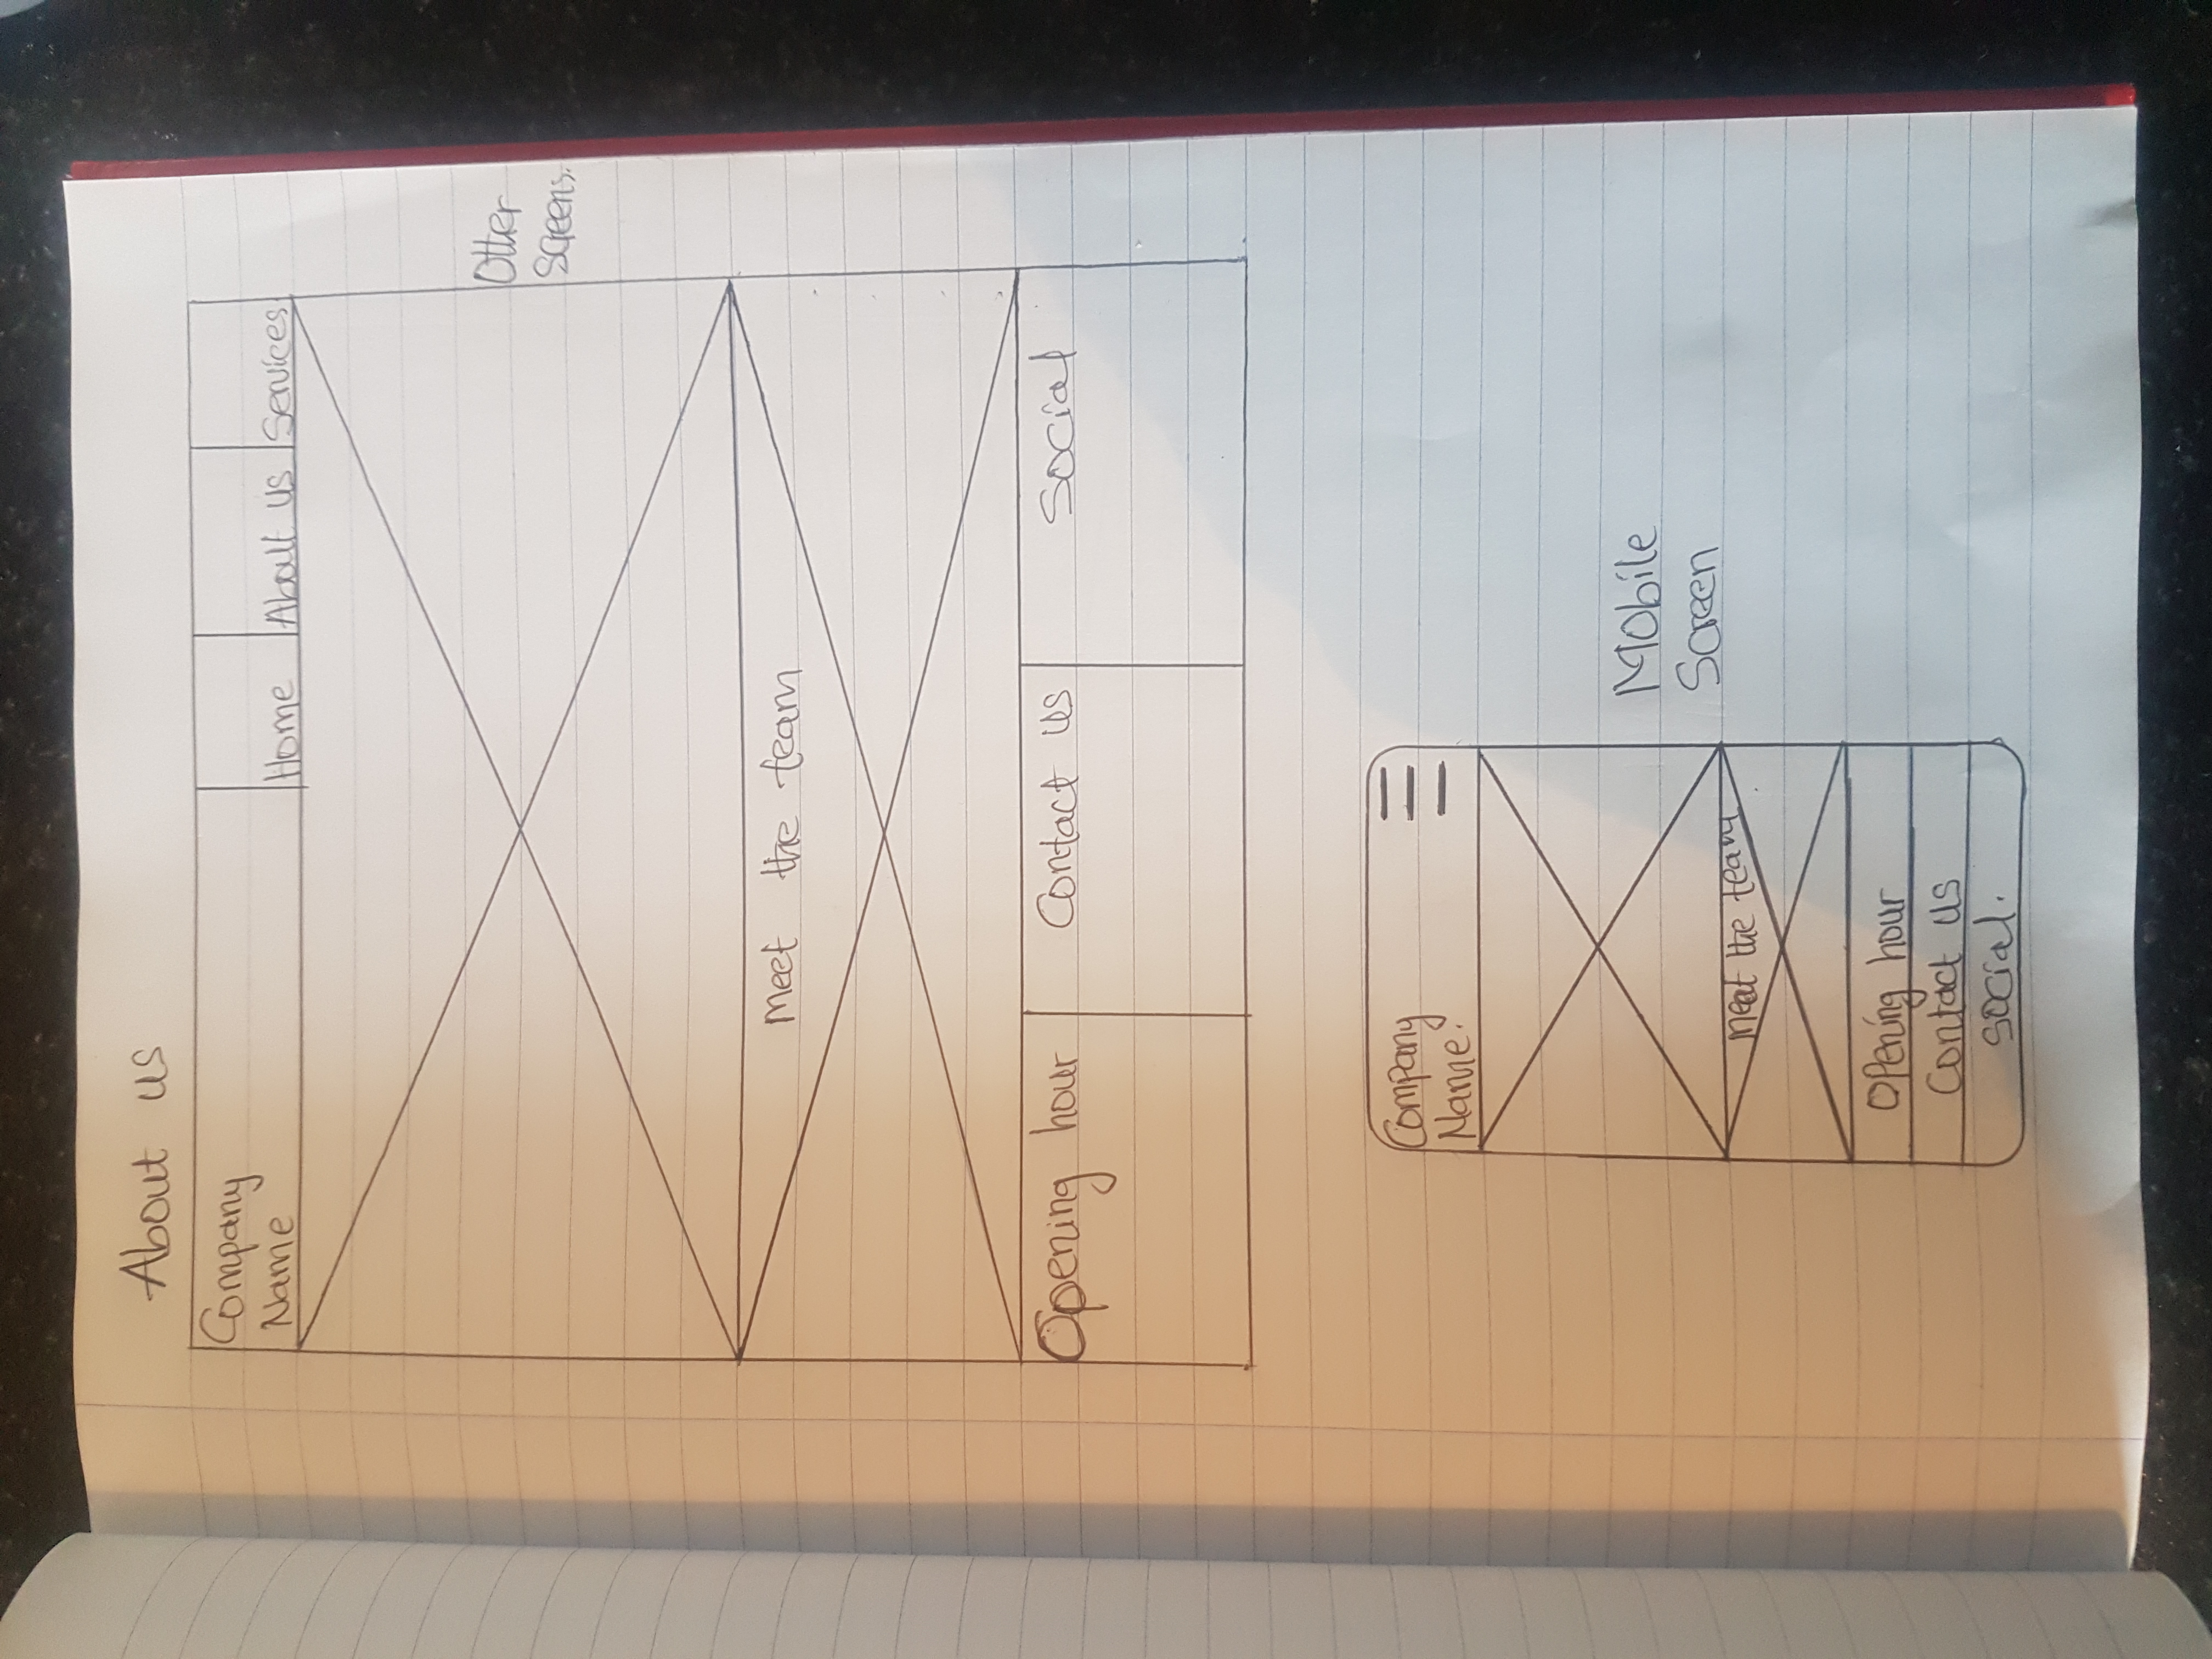 About us
Company
Name
Home
About us
Services
Other
Screens.
Meet the team
Opening hour
Contact us
Social
Company
Name.
Meet the team
Opening hour
Contact us
Social.
Mobile
Screen